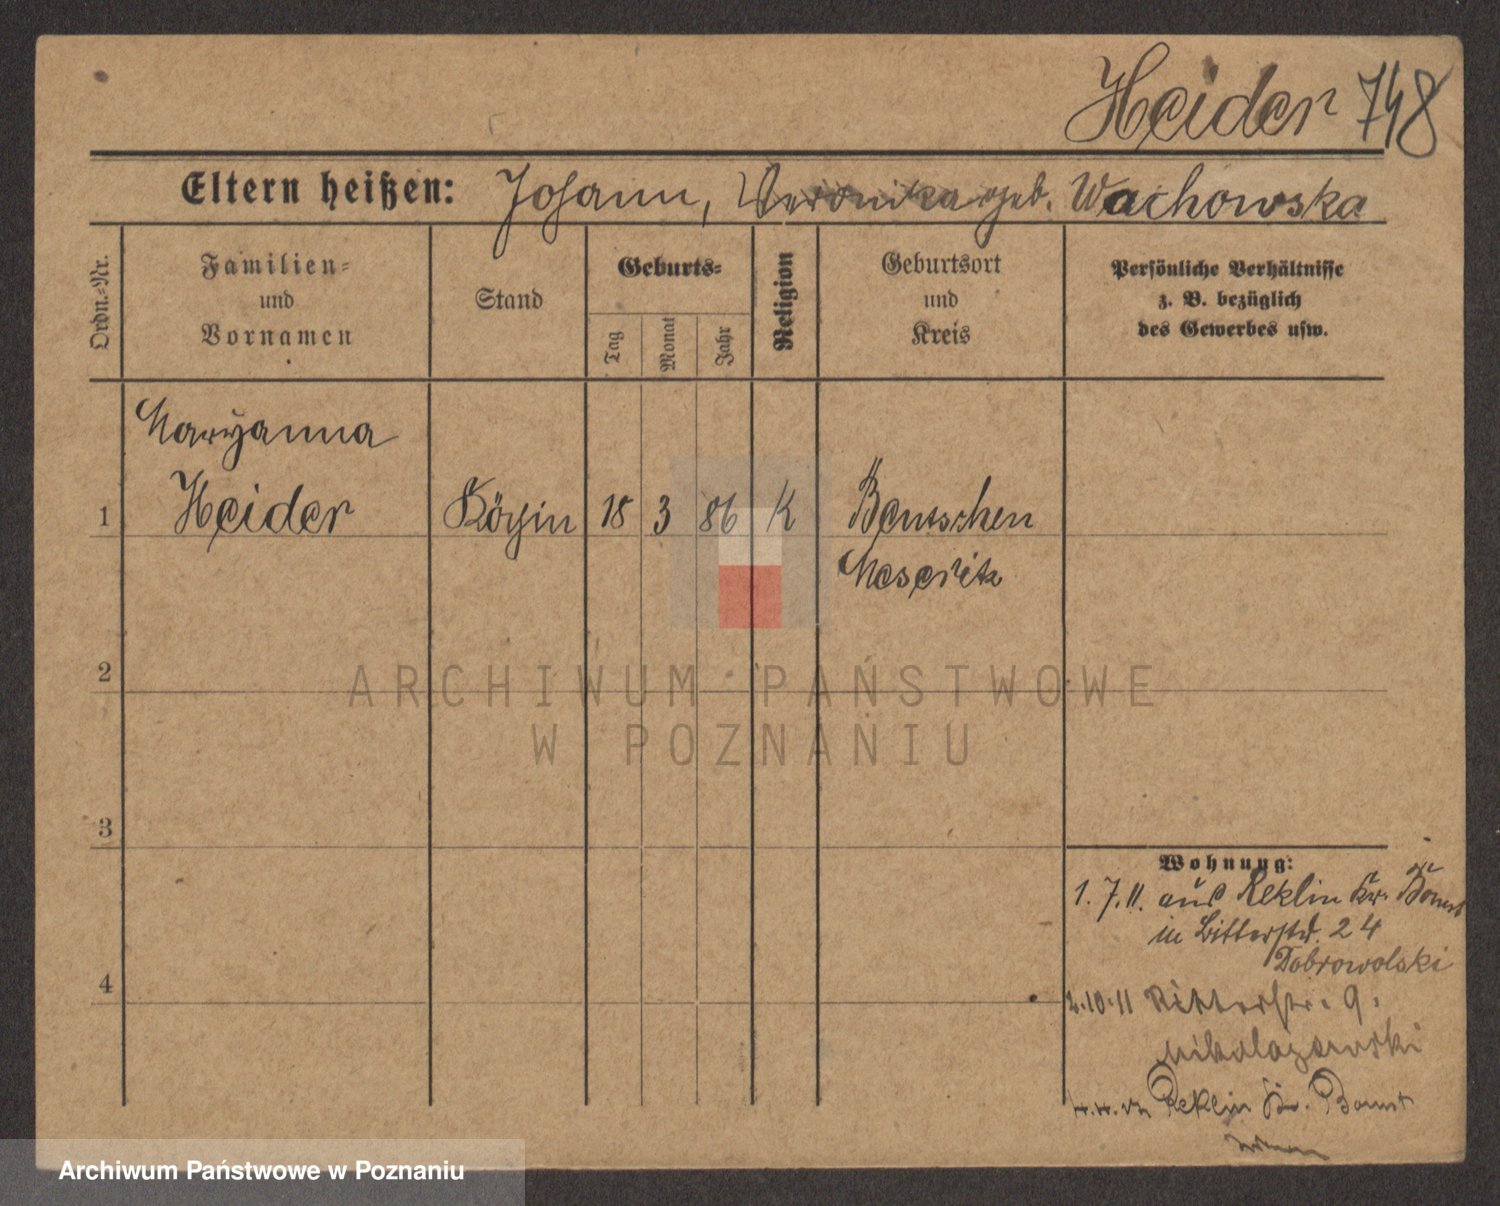 Heider 748
Eltern heißen: Johann, Veronika geb. Wachowska
Ordn.-Nr.
Familien-
und
Vornamen
Stand
Geburts-
Tag
Monat
Jahr
Religion
Geburtsort
und
Kreis
Persönliche Verhältnisse
z. B. bezüglich
des Gewerbes usw.
Maryanna
1 Heider Köchin 18 3 86 K Bentschen
Meseritz
2
ARCHIWUM PAŃSTWOWE
W POZNANIU
3
Wohnung:
1. 7. 11. aus Reklin Kr. Bomst
in Ritterstr. 24
Dobrowolski
4
2.10.11 Ritterstr. 9.
Reklin Kr. Bomst
Archiwum Państwowe w Poznaniu